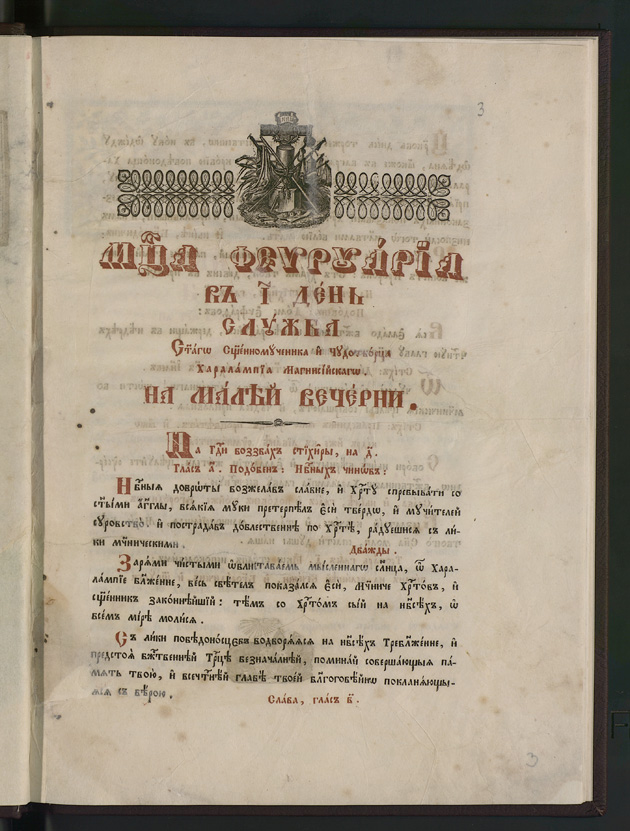 3
МЦ҃А ФЕѴРꙊА́РЇА
ВЪ І҃ ДЕ́НЬ
СЛꙊ́ЖБА
Ст҃а́гѡ сщ҃енномꙋченика и҆ чꙋдотво́рца
Харала́мпїа Магнисі́йскагѡ.
НА МА́ЛѢЙ ВЕЧЕ́РНИ.
На гдⷭ҇и воззвахъ стїхи̑ры, на д҃.
Гласъ д҃. Подо́бенъ: Нбⷭ҇ныхъ чинѡ́въ:
Нбⷭ҇ныѧ добрѡ́ты возжела́въ сла́вне, и҆ Хрⷭ҇тꙋ̀ спребыва́ти со
ст҃ы́ми а҆́гг҃лы, всѧ̑кїѧ мꙋ́ки претерпѣ́лъ є҆сѝ тве́рдѡ, и҆ мꙋчи́телей
сꙋро́вство̀, и҆ пострада́въ до́блественнѣ по Хрⷭ҇тѣ̀, ра́дꙋешисѧ съ ли́-
ки мч҃ническими.
Два́жды.
Зарѧ́ми чи́стыми ѡ҆блиста́емь мы́сленнагѡ сл҃нца, ѽ Хара-
ла́мпїе бл҃же́нне, ве́сь свѣ́телъ показа́лсѧ є҆сѝ, мч҃ниче Хрⷭ҇то́въ, и҆
сщ҃е́нникъ зако́ннѣйшїй: тѣ́мъ со Хрⷭ҇то́мъ сы́й на нб҃сѣ́хъ, ѡ҆
все́мъ мі́рѣ моли́сѧ.
Съ ли́ки побѣдоно́сцєвъ водворѧ́ѧсѧ на нб҃сѣ́хъ Требл҃же́нне, и҆
предстоѧ̀ бж҃твеннѣй Трⷪ҇цѣ безнача́льнѣй, помина́й соверша́ющыѧ па́-
мѧть твою̀, и҆ всечтⷭ҇нѣ́й главѣ̀ твое́й бл҃гоговѣ́йнѡ покланѧ́ющы-
ѧсѧ съ вѣ́рою.
Сла́ва, гла́съ в҃.
3